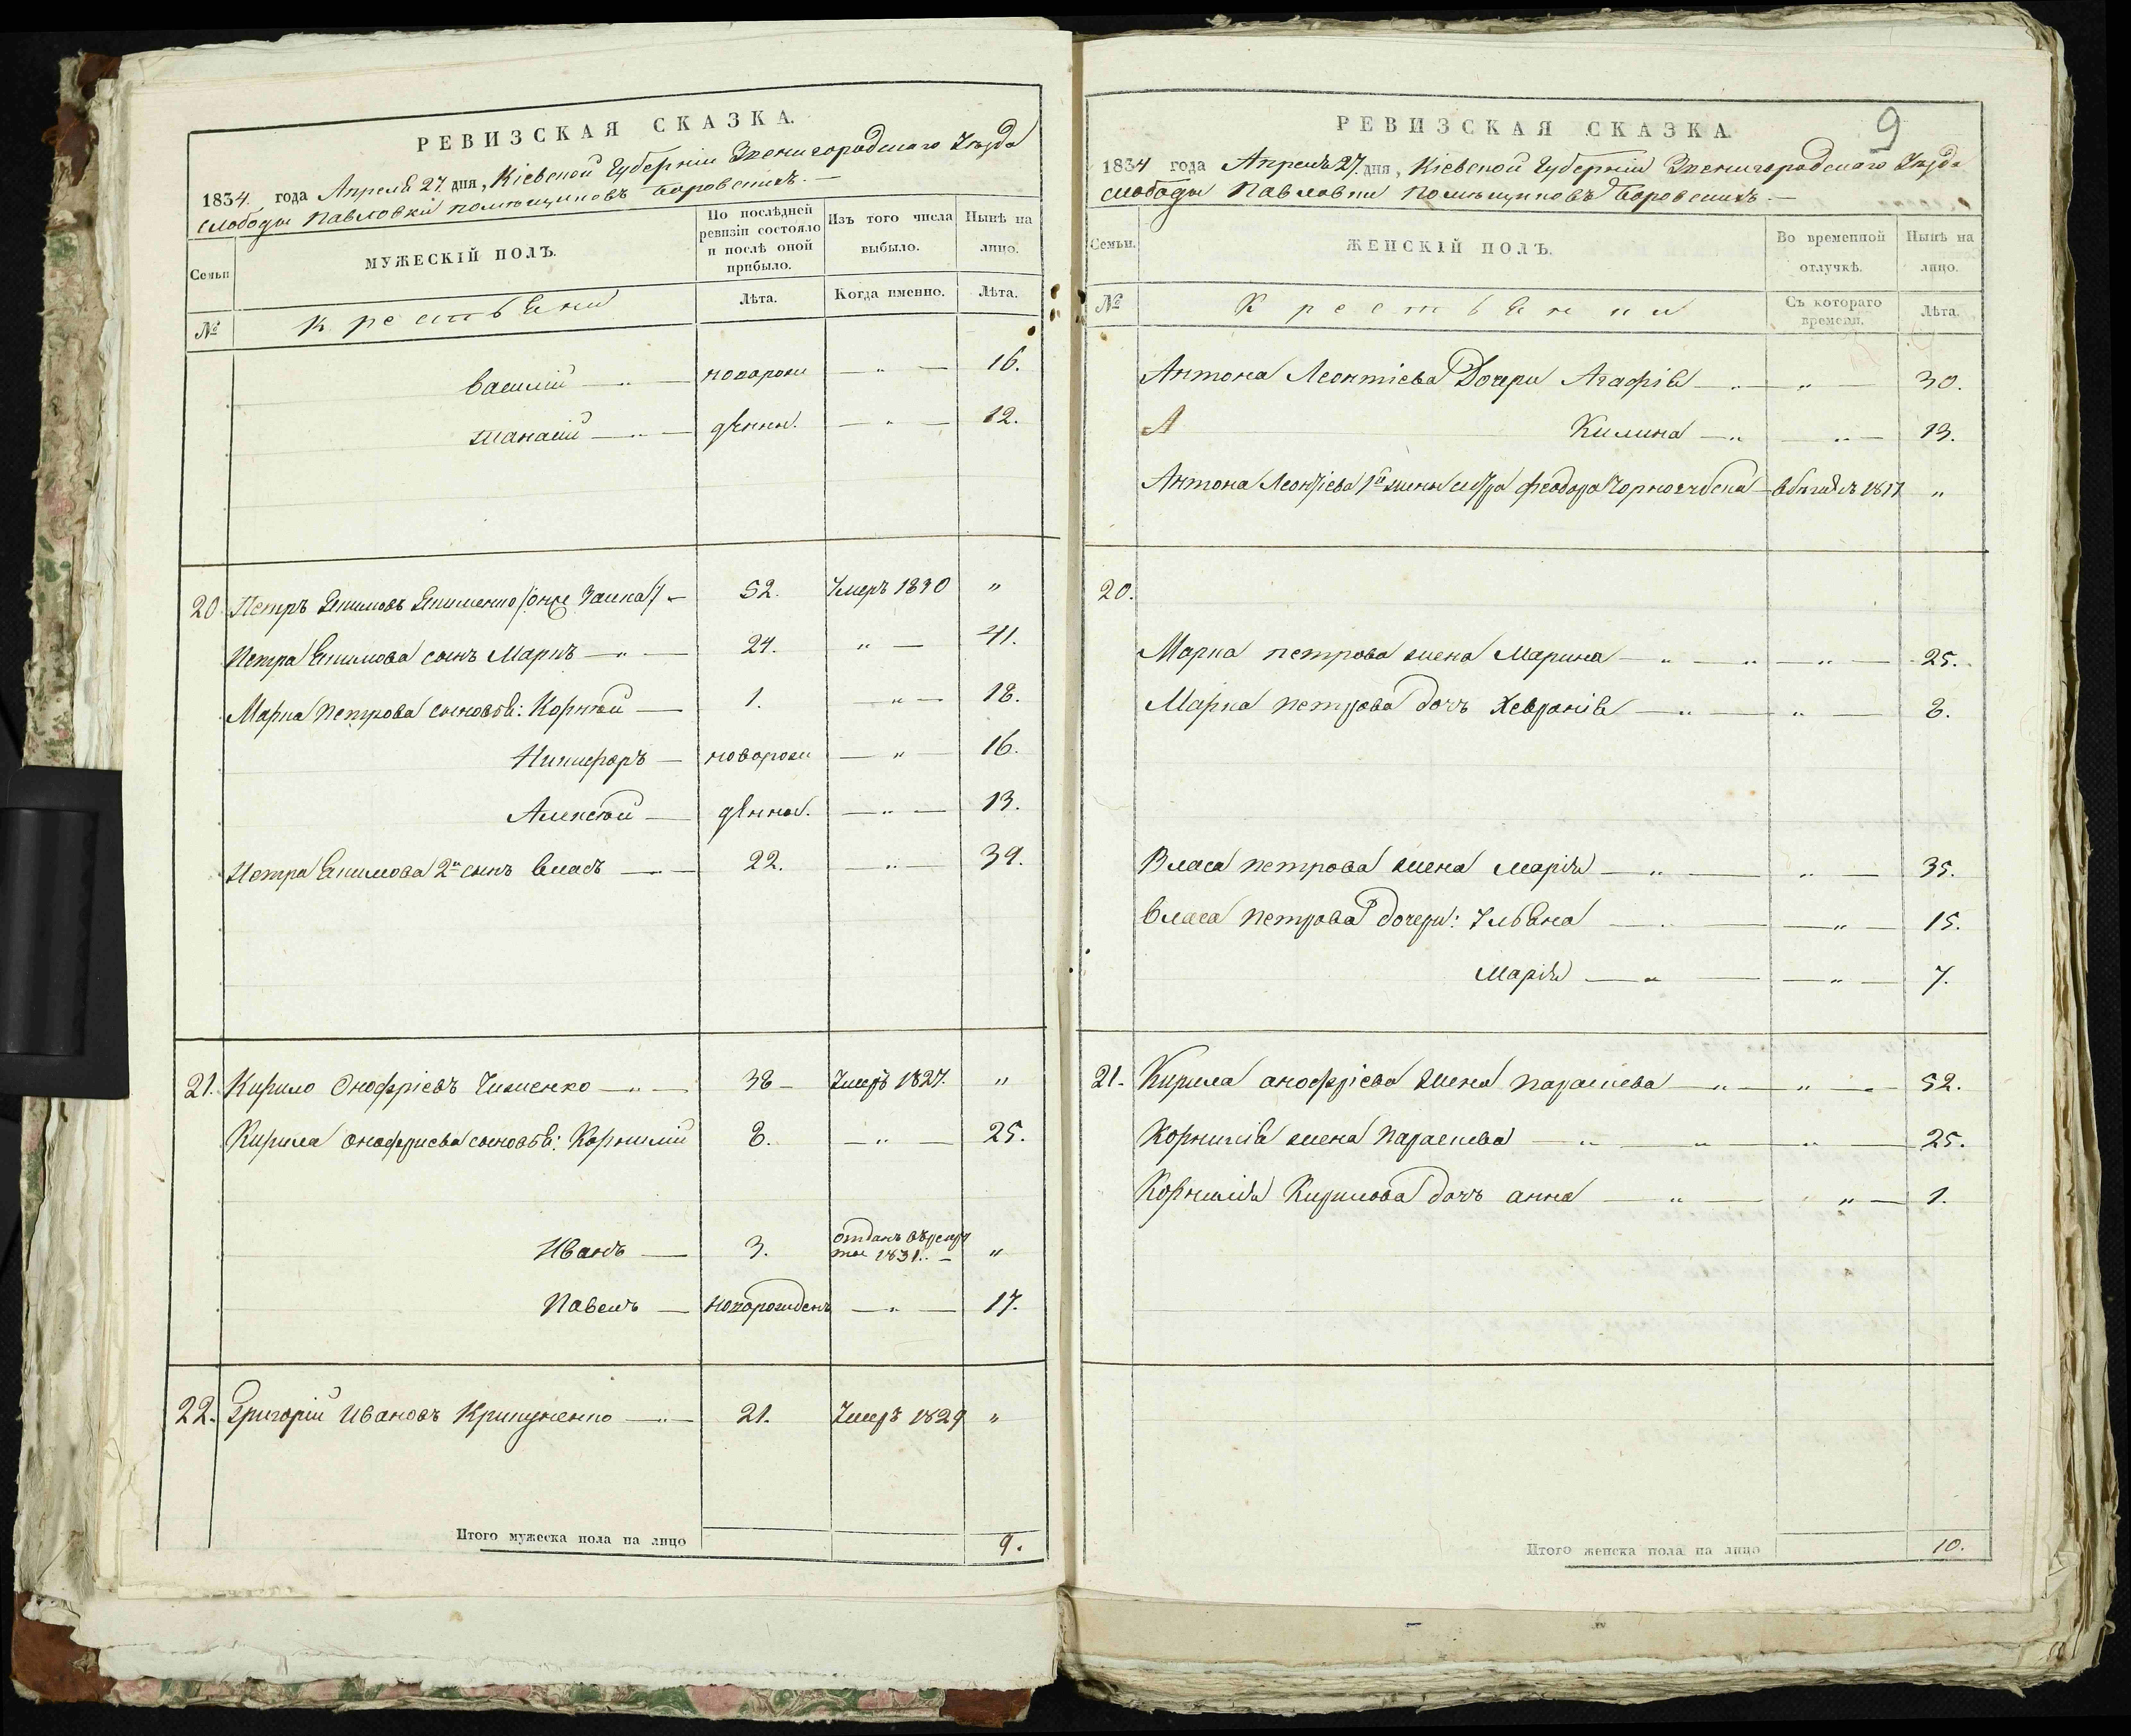 РЕВИЗСКАЯ СКАЗКА.
1834. года Апреля 27. дня, Кіевской Губерніи Звенигородскаго Уезда
слободы Павловки помещиковъ Боровскихъ. —
Семьи
МУЖЕСКІЙ ПОЛЪ.
По послѣдней ревизіи состояло и послѣ оной прибыло.
Изъ того числа выбыло.
Нынѣ на лицо.
№
Крестьяни
Лѣта.
Когда именно.
Лѣта.
Василий — " — новорож — " — 16.
Танасий — " — дѣнны. — " — 12.
20. Петръ Екимовъ Екименко /онже Заика/ — 52. Умеръ 1830 "
Петра Екимова сынъ Маркъ — " — 24. " — 41.
Марка Петрова сыновья: Корнѣй — 1. — " — 18.
Никифоръ — новорож — " — 16.
Алексѣй — дѣнны. — " — 13.
Петра Екимова 2й сынъ Власъ — 22. — " — 39.
21. Кирило Онофріевъ — " — 38 — Умеръ 1827. "
Кирила Онофриева сыновья: Корнилий 8. — " — 25.
Иванъ — 3. отданъ въ рекруты 1831. — "
Павелъ — новорожденъ — " — 17.
22. Григорій Ивановъ Крикуненко — " — 21. Умеръ 1829 "
Итого мужеска пола на лицо 9.
9
РЕВИЗСКАЯ СКАЗКА.
1834 года Апреля 27. дня, Кіевской Губерніи Звенигородскаго Уезда
слободы Павловки Помещиковъ Боровскихъ. —
Семьи.
ЖЕНСКІЙ ПОЛЪ.
Во временной отлучкѣ.
Нынѣ на лицо.
№
Крестьянки
Съ котораго времени.
Лѣта.
Антона Леонтіева Дочери Агафія — " — " — 30.
А Килина — " — " — 13.
Антона Леонтіева 1й жены сестра Феодора 1817 "
20.
Марка петрова жена Марина — " — " — " — 25.
Марка петрова дочъ Хевронія — " — " — 8.
Власа петрова жена Марія — " — " — 35.
Власа петрова дочери: Ульяна — " — " — 15.
Марія — " — " — 7.
21. Кирила онофріева жена параскева — " — " — 52.
Корнилія жена Параскева — " — " — " — 25.
Корнилія Кирилова дочъ анна — " — " — 1.
Итого женска пола на лицо 10.